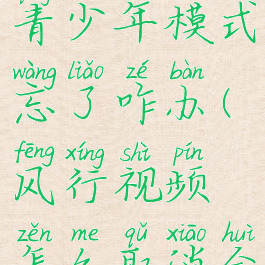 青少年模式
wàng liǎo zé bàn
忘了咋办(
fēng xíng shì pín
风行视频
zěn me qǔ xiāo huì
怎么取消会